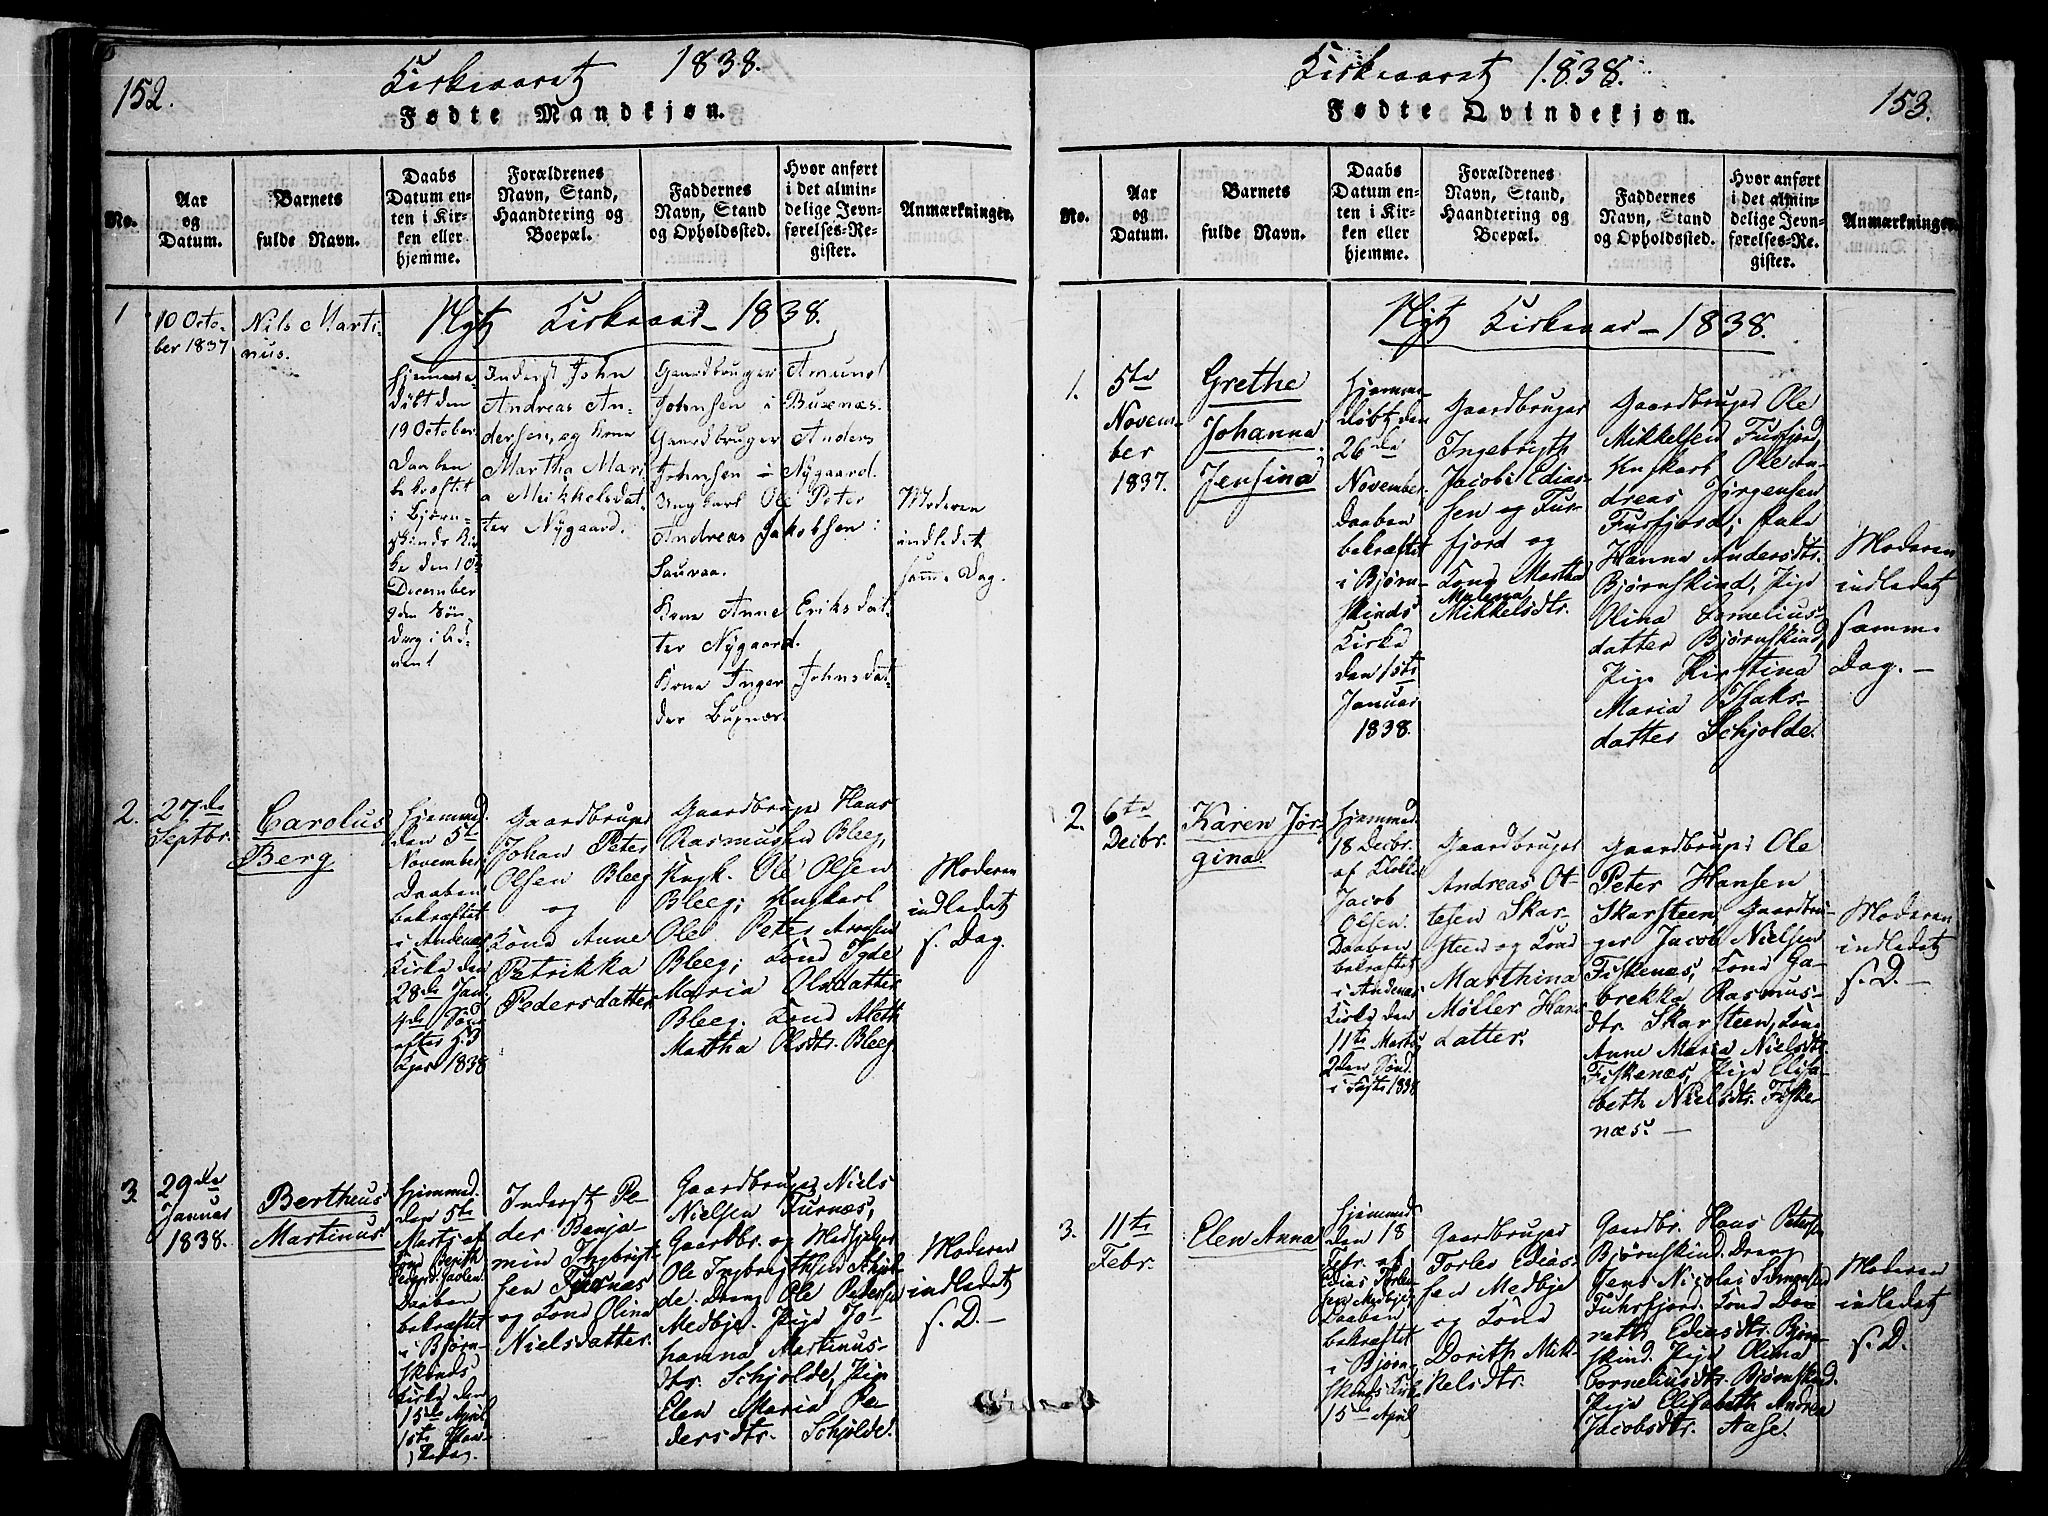 152.
Kirkeaaret 1838.
Fødte Mandkjøn.
No.
Aar
og
Datum.
Barnets
fulde Navn.
Daabs
Datum en-
ten i Kir-
ken eller
hjemme.
Forældrenes
Navn, Stand,
Haandtering og
Boepæl.
Faddernes
Navn, Stand
og Opholdssted.
Hvor anført
i det almin-
delige Jevn-
førelses-Re-
gister.
Anmærkninger.
Nyt Kirkeaar 1838.
1
10 Octo-
ber 1837
Nils Marti-
nus.
Hjemme-
døbt den
19 October
Daaben
bekræftet
i Bjørn-
skinds Kir-
ke den 10de
December
2den Søn-
dag i Ad-
vent
Inderst John
Andreas An-
dersen, og Kone
Martha Mari-
a Mikkelsdat-
ter Nygaard.
Gaardbruger Amund
Johnsen i Buxnæs.
Gaardbruger Anders
Johnsen i Nygaard.
Ungkarl Ole Peter
Andreas Jakobsen
Sauraa.
Kone Anne Eriksdat-
ter Nygaard.
Kone Inger Johnsdat-
ter Buxnæs
Moderen
indledet
samme Dag.
2.
27de
Septbr.
Carolus
Berg
Hjemmed.
den 5te
November;
Daaben
bekræftet
i Andenæs
Kirke den
28de Jan:
4de Sønd
efter H. 3
Kger 1838
Gaardbruger
Johan Peter
Olsen Bleeg
og
Kone Anne
Petrikka
Pedersdatter
Gaardbruger Hans
Rasmussen Bleeg,
Ungk. Ole Olsen
Bleeg; Huskarl
Ole Peter Aronsen
Bleeg; Kone Igde
Maria Olsdatter
Bleeg; Kone Aleth
Martha Olsdtr. Bleeg
Moderen
indledet
s. Dag.
3.
29de
Januar
1838.
Bertheus
Martinus
Hjemmed.
den 5te
Marts af
Kone Berith
Pedersd. Saolen
Daaben
bekræftet
i Bjørn-
skinds
Kirke den
15de April
1ste Paas-
kedag.
Inderst Pe-
der Benja-
min Ingbrigt-
sen Furnæs
og Kone Olina
Nielsdatter.
Gaardbruger Niels
Nielsen Furnæs,
Gaardbr. og Medhjelper
Ole Ingbrigthsen Schjol-
de. Dreng Ole Pedersen
Medbye. Pige Jo-
hanna Martinus-
dtr. Schjolde, Pige
Elen Maria Pe-
dersdtr. Schjolde.
Moderen
indledet
s. D. —
153.
Kirkeaaret 1838.
Fødte Qvindekjøn.
No.
Aar
og
Datum.
Barnets
fulde Navn.
Daabs
Datum en-
ten i Kir-
ken eller
hjemme.
Forældrenes
Navn, Stand,
Haandtering og
Boepæl.
Faddernes
Navn, Stand
og Opholdssted.
Hvor anført
i det almin-
delige Jevn-
førelses-Re-
gister.
Anmærkninger.
Nyt Kirkeaar — 1838.
1.
5te
Novem-
ber
1837.
Grethe
Johanna
Jensina
Hjemme-
døbt den
26de
November.
Daaben
bekræftet
i Bjørn-
skinds
Kirke
den 1ste
Januar
1838.
Gaardbruger
Ingebrigth
Jacob Edias-
sen og Fur-
fjord og
Kone Martha
Malena
Mikkelsdtr.
Gaardbruger Ole
Mikkelsen Fusfjord,
Huskarl Ole An-
dreas Jørgensen
Fusfjord; Enke
Hanna Andersdtr.
Bjørnskind, Pige
Olina Cornelius-
datter Bjørnskind,
Pige Kirstina
Maria Isaks-
datter Schjolde.
Moderen
indledet
samme
Dag. —
2.
6te
Decbr.
Karen Jør-
gina
Hjemmed
18 Decbr.
af Klokker
Jacob
Olsen.
Daaben
bekræftet
i Andenæs
Kirke den
11te Marts,
2den Sønd.
i Faste 1838
Gaardbruger
Andreas Ot-
tesen Skar-
steen og Kone
Marthina
Møller Hans
datter.
Gaardbruger Ole
Peter Hansen
Skarsteen, Gaardbru-
ger Jacob Nielsen
Fiskenæs, Kone Ga-
brekka Rasmus-
dtr. Skarsteen, Kone
Anne Maria Nielsdtr.
Fiskenæs, Pige Elisa-
beth Nielsdtr. Fiske-
næs. —
Moderen
indledet
s. D. —
3.
11te
Febr.
Elen Anna
Hjemmed
den 18
Febr. af
Edias Torle-
sen Medbye,
Daaben
bekræftet
i Bjørn-
skinds Kirke
15de April
Gaardbruger
Torler Edias-
sen Medbye
og Kone
Dorith Mik-
kelsdtr.
Gaardbr. Hans Petersen
Bjørnskind. Dreng
Jens Nicolai Simonsen
Fuhsfjord. Kone Do-
reth Ediasdtr. Bjørn-
skind. Pige Olina
Corneliusdtr. Bjørnskind.
Pige Elisabeth Andrea
Jacobsdtr. Aase.
Moderen
indledet
s. D.